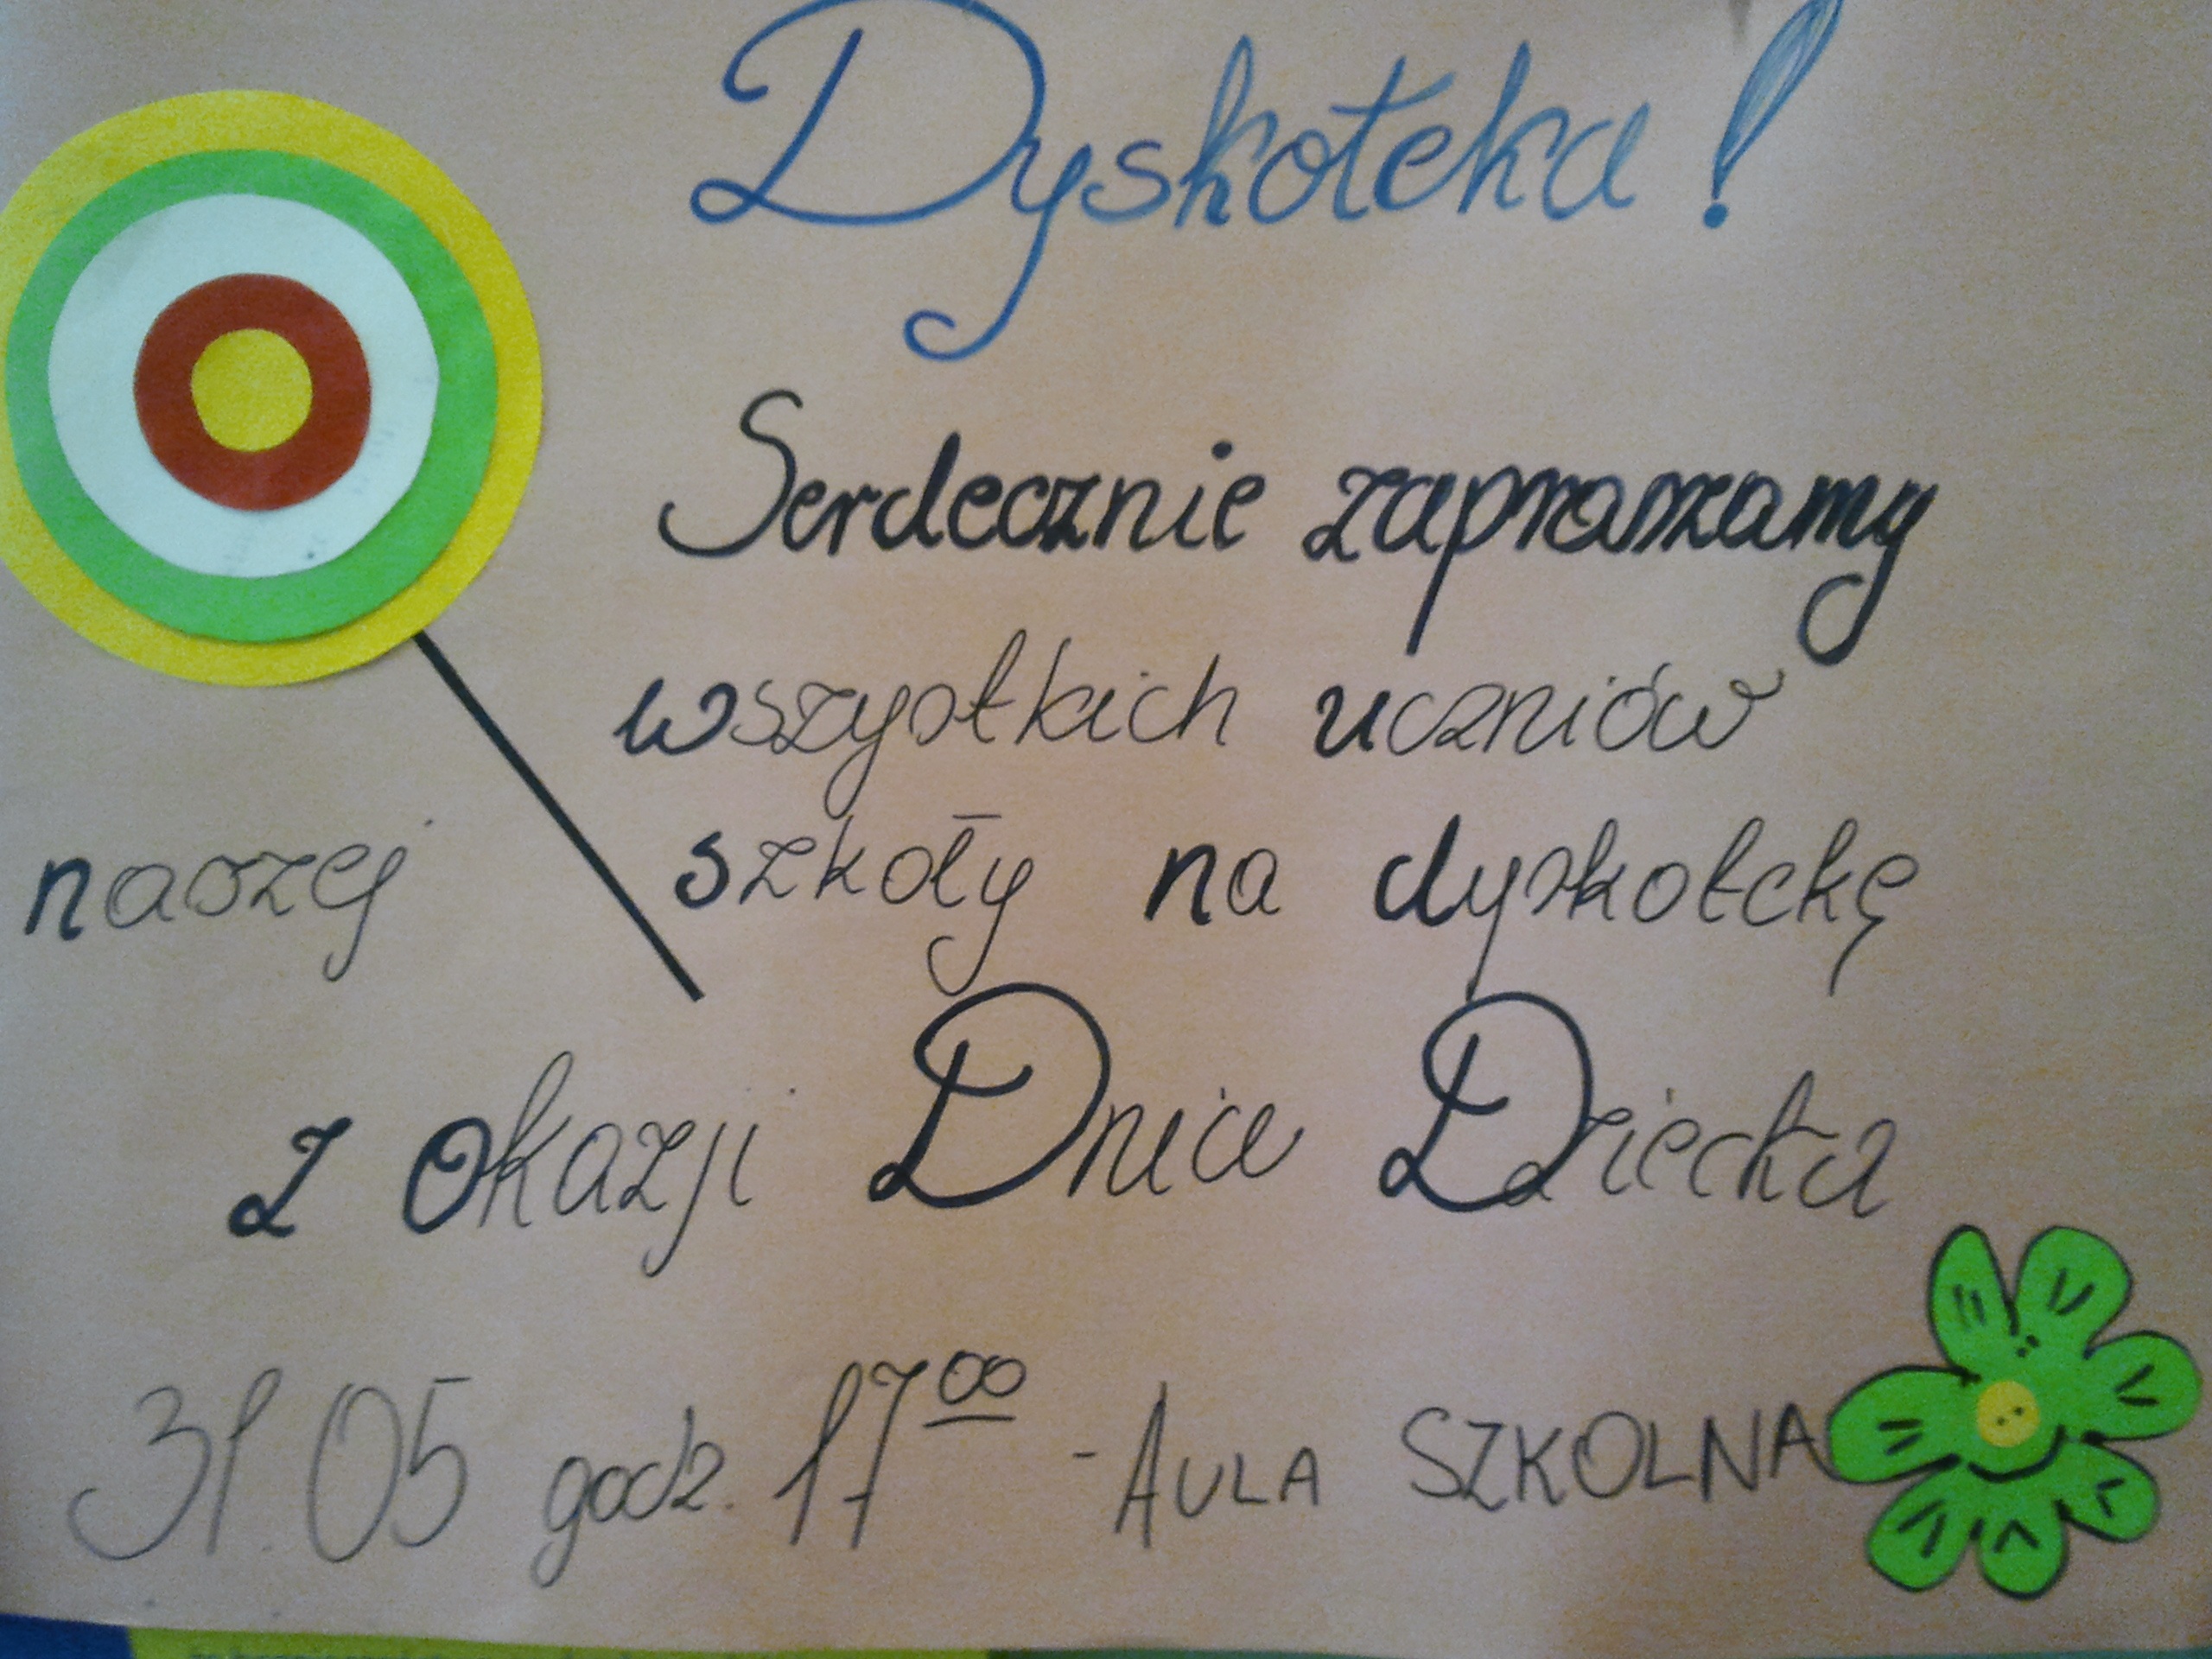 Dyskoteka!
Serdecznie zapraszamy
wszystkich uczniów
naszej szkoły na dyskotekę
z okazji Dnia Dziecka
31.05 godz. 17⁰⁰ - AULA SZKOLNA